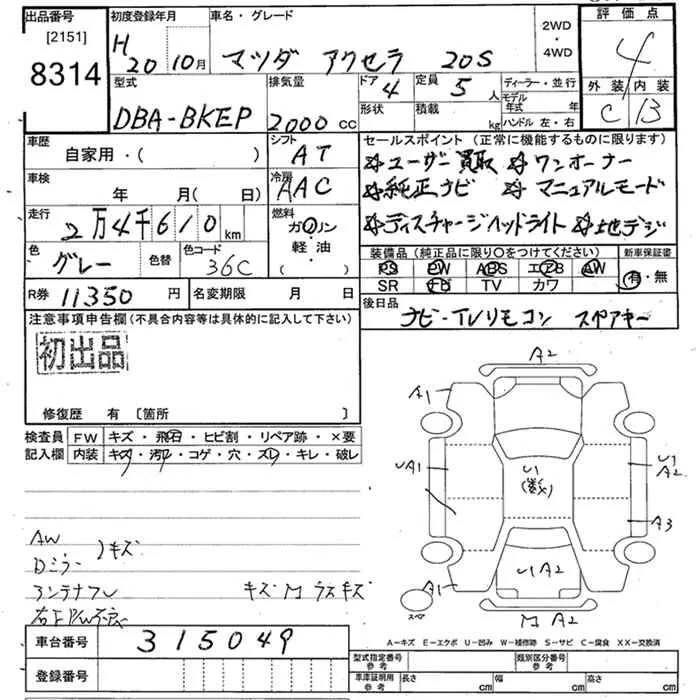 出品番号
[2151]
8314
初度登録年月
H 20 10月
車名・グレード
マツダ アクセラ 20S
2WD
・
4WD
評価点
4
外装 内装
C B
型式
DBA-BKEP
排気量
2000 CC
ドア 4
定員 5 人
形状
積載 kg
ディーラー・並行
モデル年式 年
ハンドル 左・右
車歴
自家用・( )
シフト
AT
車検
年 月(日)
冷房
AAC
走行
2万4千610 km
燃料
ガソリン
軽・油
( )
色
グレー
色替
色コード
36C
R券 11350 円
名変期限 月 日
セールスポイント (正常に機能するものに限ります)
ユーザー買取 ワンオーナー
純正ナビ マニュアルモード
ディスチャージヘッドライト 地デジ
装備品 (純正品に限り○をつけてください)
PS PW ABS エアB AW
SR TV カワ
新車保証書
有・無
後日品
ナビ・TVリモコン スペアキー
注意事項申告欄 (不具合内容等は具体的に記入して下さい)
初出品
修復歴 有 〔箇所 〕
検査員
記入欄
FW キズ・飛石・ヒビ割・リペア跡・×要
内装 キズ・汚レ・コゲ・穴・スレ・キレ・破レ
AW
Dミラー
キズ
アンテナフレ
キズ M ラスキズ
A2
A1
UA1
U1
(数)
U1
A2
A3
U1 A2
A1
スペア
M A2
A−キズ E−エクボ U−凹み W−補修跡 S−サビ C−腐食 XX−交換済
車台番号 315049
登録番号
型式指定番号
参考
類別区分番号
参考
車庫証明用
参考
長さ cm
幅 cm
高さ cm